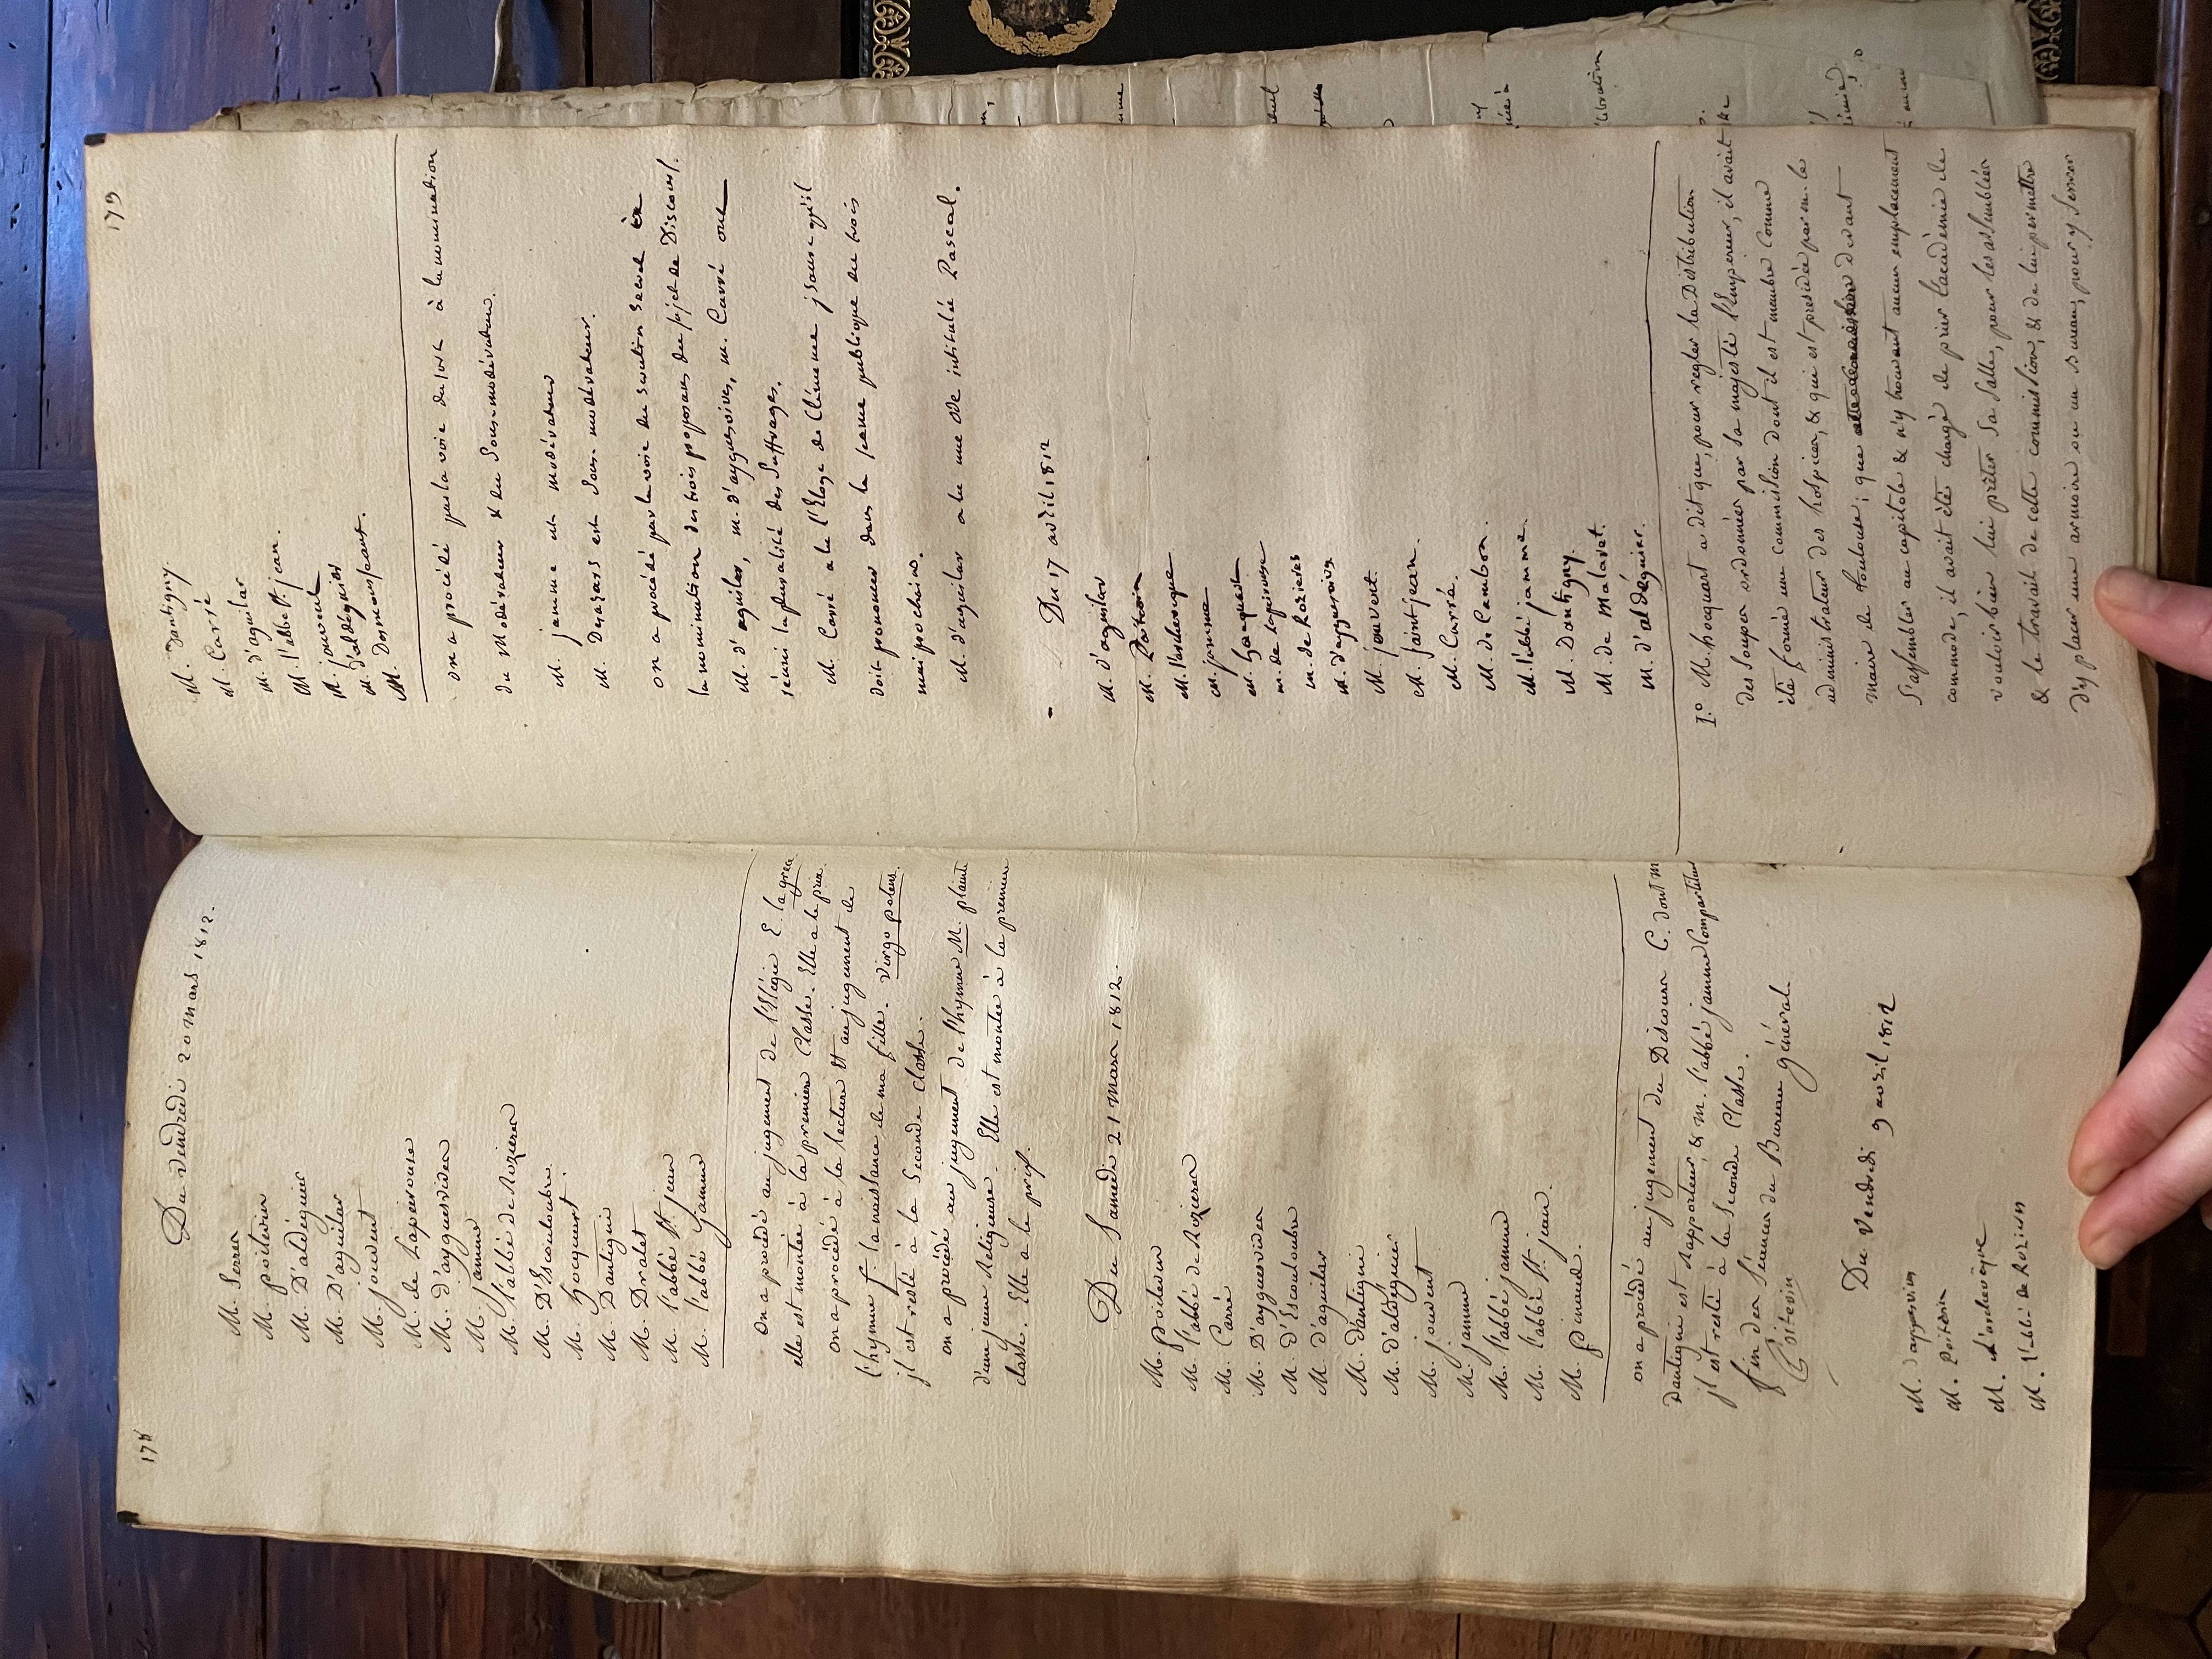 178
Du vendredi 20 mars 1812.
M. Serres
M. poitevin
M. D'aldéguier
M. D'aguilar
M. jouvent
M. de Lapeyrouse
M. d'ayguesvives
M. jamme
M. l'abbé de Rozieres
M. D'Escouloubre.
M. hocquart.
M. Dantigni
M. Dralet
M. l'abbé St jean
M. l'abbé jamme
On a procédé au jugement de l'Elégie E. la grea
elle est montée à la premiere Classe. Elle a le prix.
On a procédé à la lecture et au jugement de
l'hymne f. la naissance de ma fille. Virgo potens.
il est resté à la Seconde Classe.
on a procédé au jugement de l'hymne M. plainte
d'une jeune Religieuse. Elle est montée à la premiere
classe. Elle a le prix.
Du Samedi 21 Mars 1812.
M. poitevin
M. l'abbé de Rozieres
M. Carré
M. D'ayguesvives
M. d'Escouloubre
M. d'aguilar
M. dantigni
M. d'aldéguier
M. jouvent
M. jamme
M. l'abbé jamme
M. l'abbé St jean.
M. pinaud.
on a procédé au jugement du Discours C. dont m
Dantigni est rapporteur, & m. l'abbé jamme Compartiteur
il est resté à la Seconde Classe.
fin des Séances du Bureau général
Poitevin
Du Vendredi 9 avril 1812
M. d'ayguesvives
M. Poitevin
M. l'archevêque
M. l'abbé de Rozieres
179
M. Dantigny
M. Carré
M. d'aguilar
M. l'abbé St. jean.
M. jouvent
M. d'aldéguier
M. Desmousseaux.
on a procédé par la voie du sort à la nomination
du Modérateur & du Sous-modérateur.
M. jamme est modérateur
M. Desazars est Sous-modérateur.
on a procédé par la voie du Scrutin Secret à
la nomination des trois proposans du sujet de Discours.
M. d'aguilar, m. d'ayguesvives, m. Carré ont
réuni la pluralité des Suffrages.
M. Carré a lu l'Eloge de Clémence jsaure qu'il
doit prononcer dans la seance publique du trois
mai prochain.
M. d'aguilar a lu une Ode intitulée Pascal.
Du 17 avril 1812
M. d'aguilar
M. Poitevin
M. l'archevêque
M. jamme
M. hocquart
m. de lapeirouse
m. de Rozieres
M. d'ayguesvives
M. jouvent.
M. saint jean.
M. Carré.
M. de Cambon.
M. l'abbé jamme.
M. Dantigny.
M. de Malaret.
M. d'aldéguier.
I.° M. hocquart a dit que, pour regler la Distribution
des Soupes ordonnées par Sa majesté l'Empereur, il avait
été formé une commission dont il est membre Comme
administrateur des hospices, & qui est présidée par m. le
maire de Toulouse; que devant
S'assembler au capitole & n'y trouvant aucun emplacement
commode, il avait été chargé de prier l'académie de
vouloir bien lui prêter Sa Salle, pour les assemblées
& le travail de cette commission, & de lui permettre
d'y placer une armoire ou un Bureau, pour y Serrer